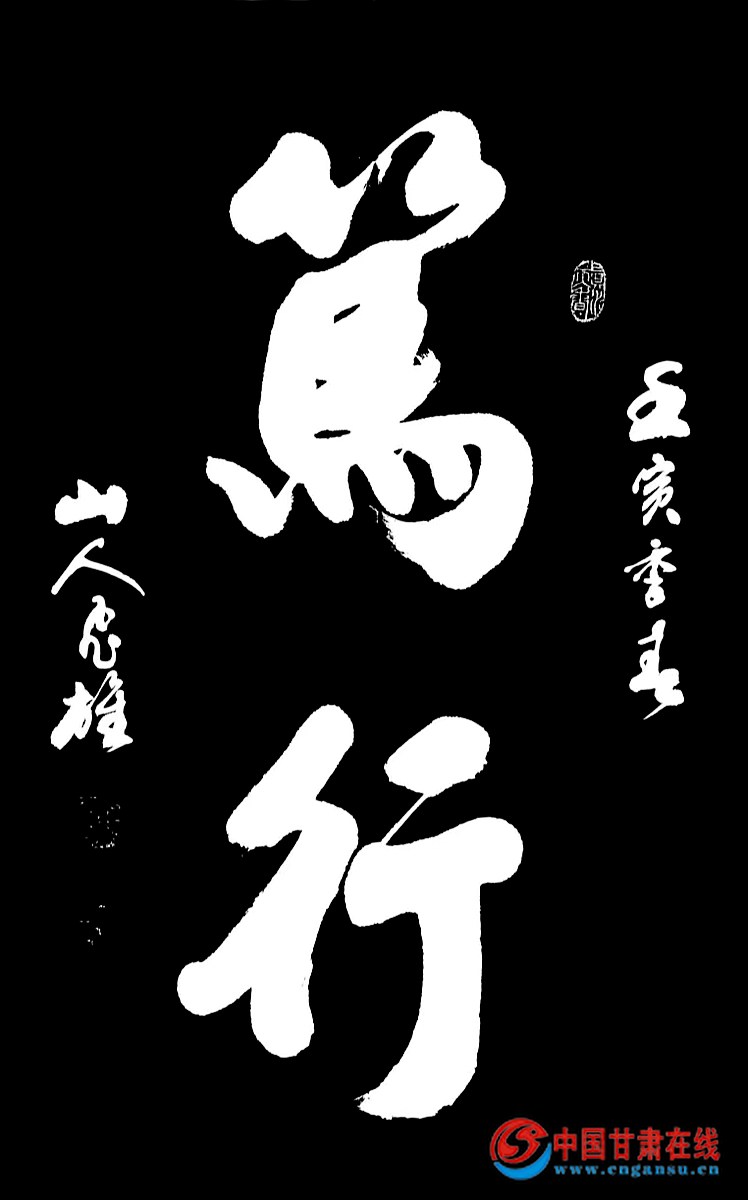 壬寅季春
篤行
山人忠雄
中国甘肃在线
www.cngansu.cn